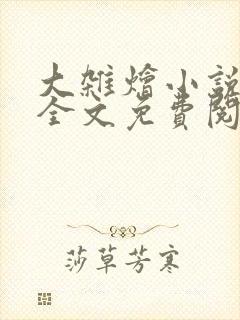 大雜燴小說
全文免費閱
莎草芳寒